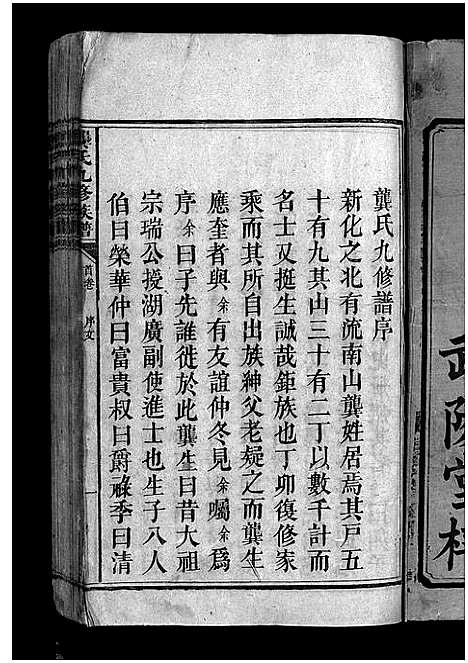 龔氏九修譜序
新化之北有流南山龔姓居焉其戸五
十有九其山三十有二丁以數千計而
名士又挺生誠哉鉅族也丁卯復修家
乘而其所自出族紳父老疑之而龔生
應奎者與余有友誼仲冬見余囑余爲
序余曰子先誰徙於此龔生曰昔大祖
宗瑞公授湖廣副使進士也生子八人
伯曰榮華仲曰富貴叔曰爵祿季曰清
龔氏九修族譜
首卷 序文
一
武陵堂梓